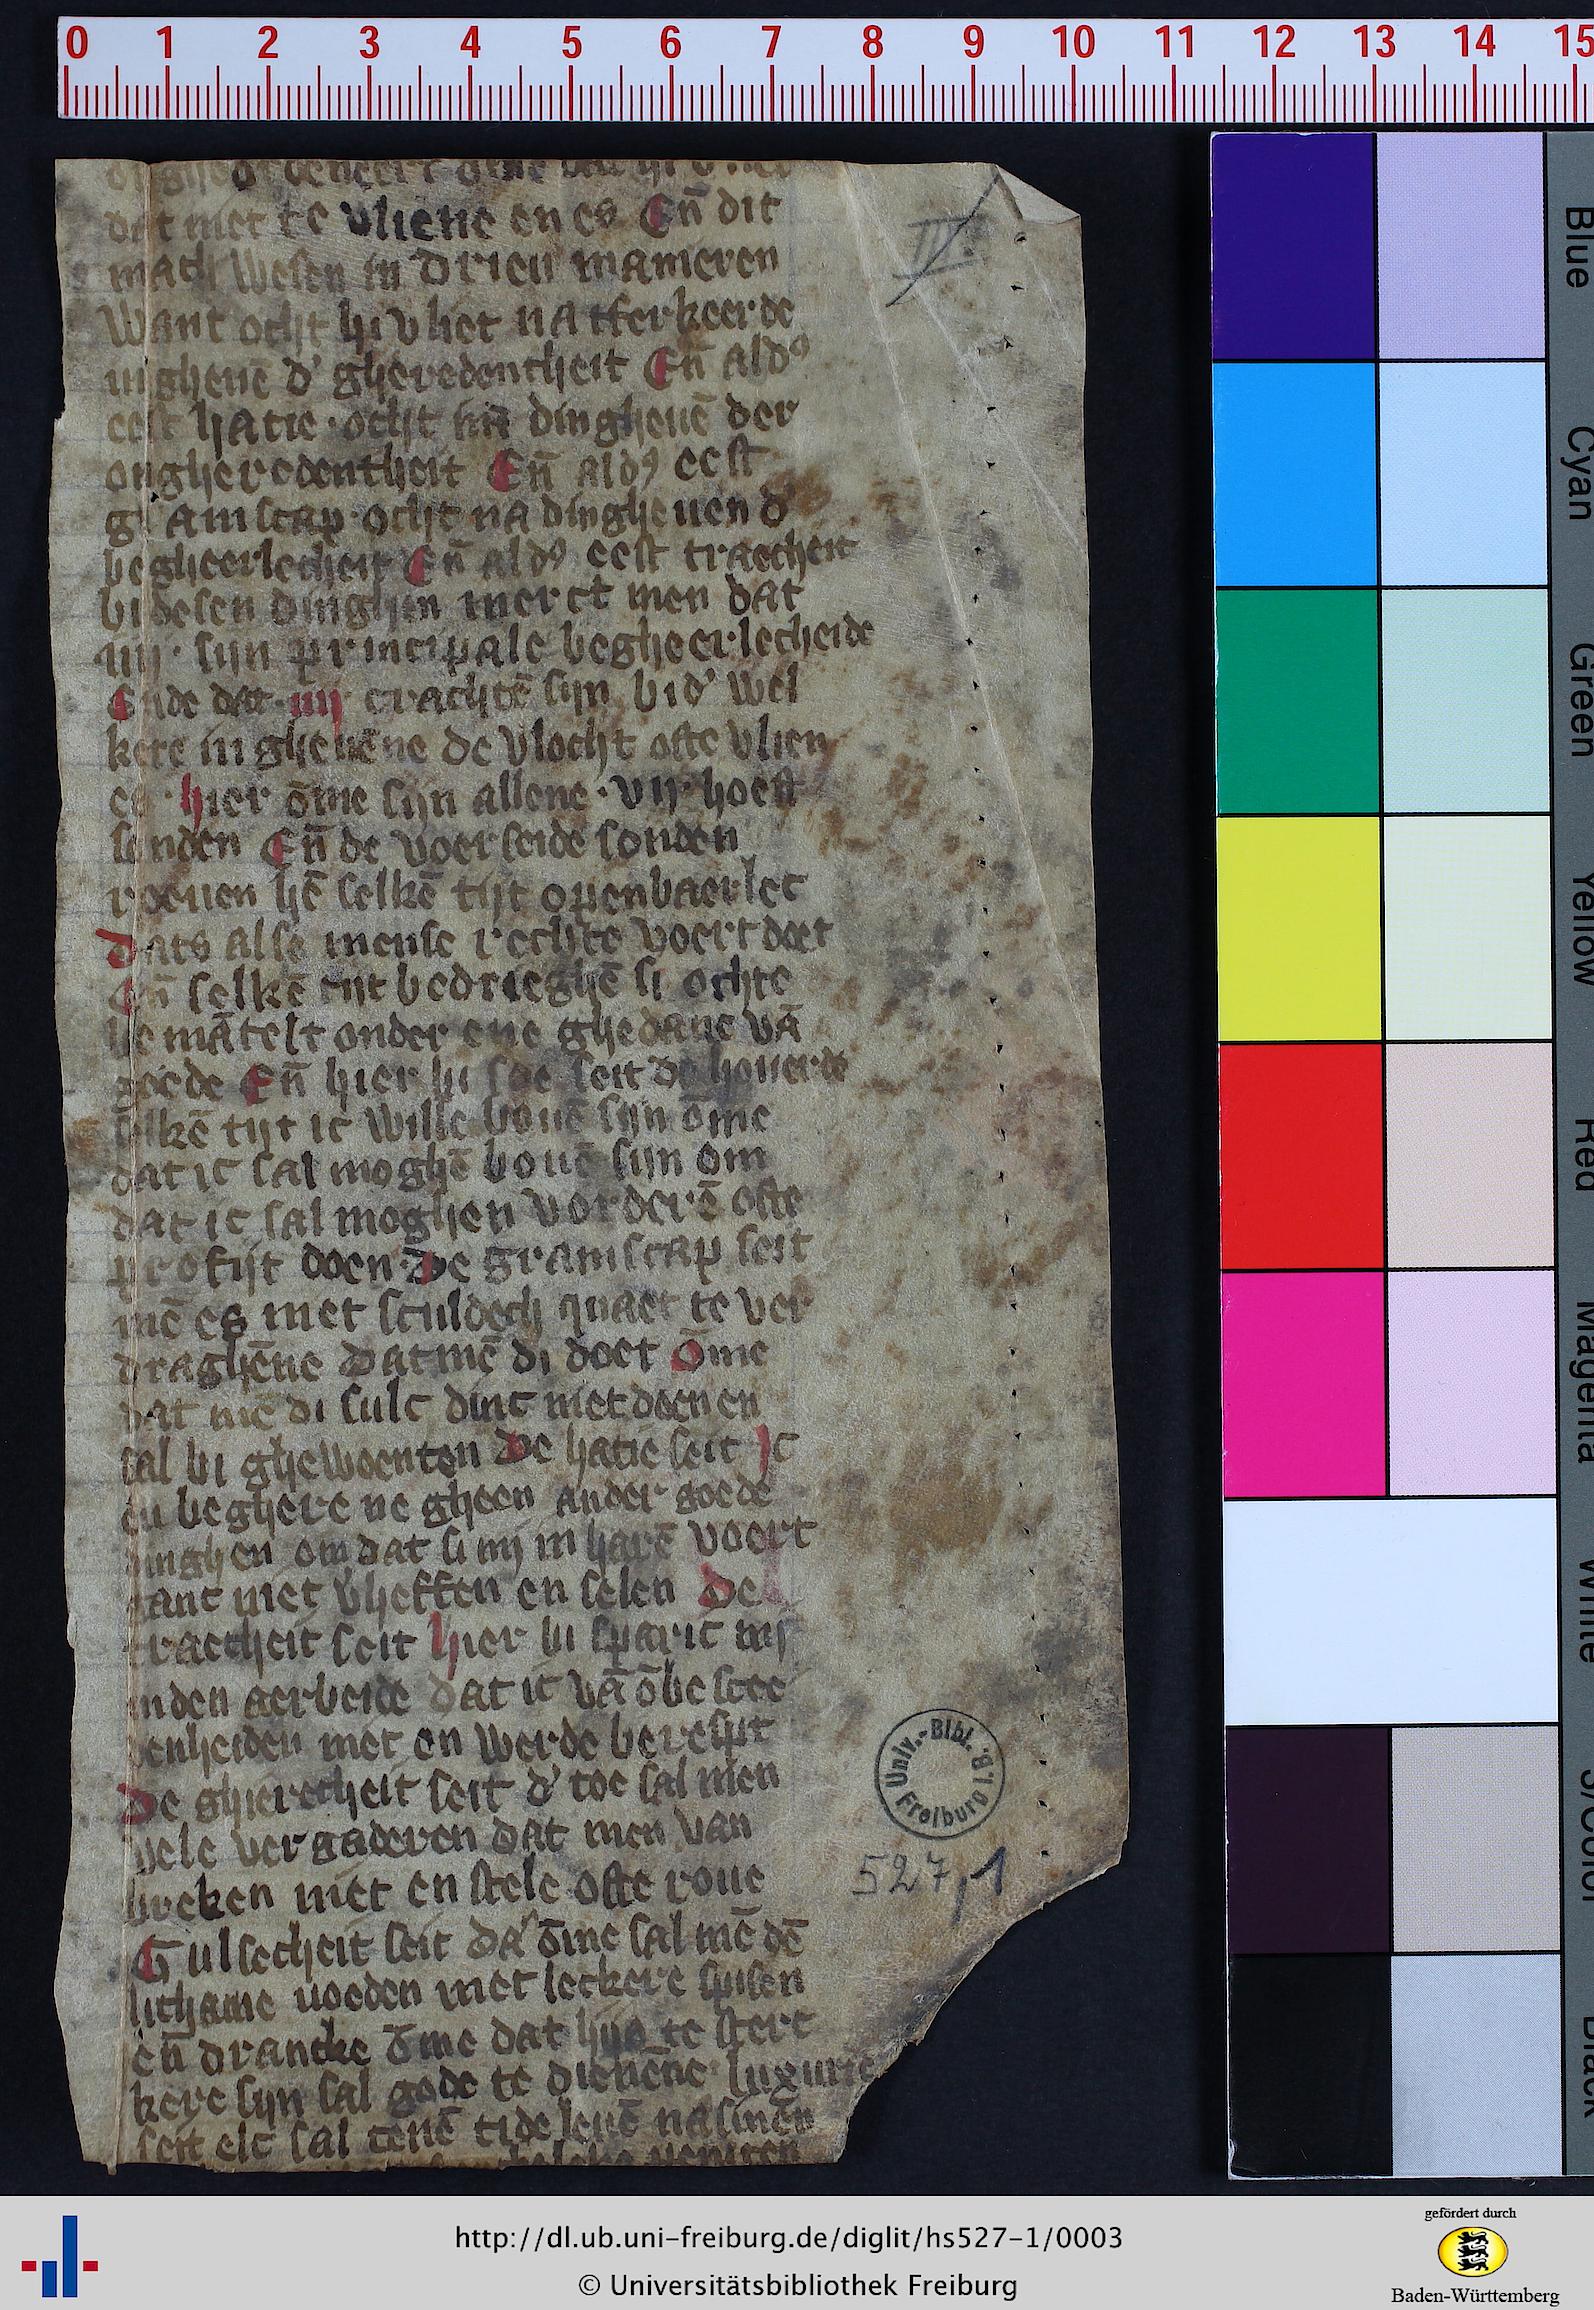 0 1 2 3 4 5 6 7 8 9 10 11 12 13 14 15
dat niet te vliene en es En̄ dit
mach wesen in drien manieren
Want ocht hi vliet na tferkeerde
inghenē d' gheredentheit En̄ aldꝰ
eest hatie · ocht dinghenē der
ongheredentheit En̄ aldꝰ eest
gramscap · ocht na dinghenen d'
begheerlecheit En̄ aldꝰ eest traecheit
bi desen dinghen merct men dat
iiij · sijn principale begheerlecheide
Ende dat · iiij crachtē sijn bi d' wel
kere in ghenēne de vlocht ofte vlien
es · hier ōme sijn allene · vij · hoeft
sonden En̄ de voerseide sonden
roenen hē selkē tijt openbaerlec
Dats alse mense rechte voert doet
En̄ selkē tijt bedrieghē si ochte
be mātelt onder ene ghedane vā
goede En̄ hier bi soe seit de houerde
selkē tijt ic wille bouē sijn ōme
dat ic sal moghē bouē sijn om
dat ic sal moghen vorderē ofte
profijt doen · De gramscap seit
mē es niet sculdech quaet te ver
draghēne Dat mē di doet Ōme
dat mē di sulc dinc niet doen en
sal bi ghewoenten De hatie seit Ic
en beghere ne gheen ander goede
dinghen om dat si mi in harē voert
ganc niet vheffen en selen De
traecheit seit hier bi sparic mi
inden aerbeide dat ic vā ōbescee
denheiden niet en werde berespt
De ghierecheit seit d' toe sal men
vele vergaderen dat men van
breken niet en stele ofte roue
Gulsecheit seit da' ōme sal mē dē
lichame uoeden met leckere spisen
en̄ drancke ōme dat hijs te sterc
kere sijn sal gode te dienēne · luxurie
seit elc sal tenē tide leuē na sinen
III.
Univ.-Bibl. Freiburg i. B.
527,1
Blue
Cyan
Green
Yellow
Red
Magenta
White
3/Color
Black
http://dl.ub.uni-freiburg.de/diglit/hs527-1/0003
© Universitätsbibliothek Freiburg
gefördert durch
Baden-Württemberg